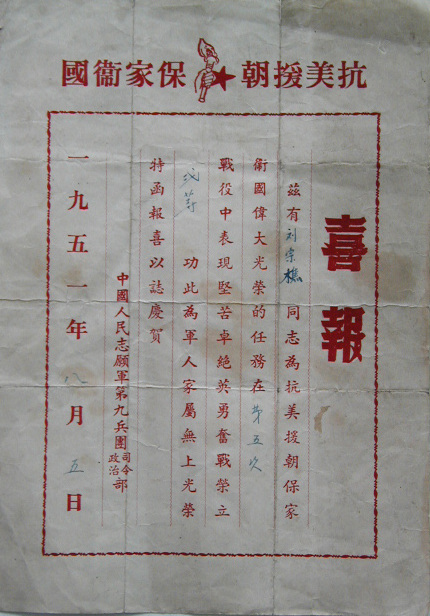 抗美援朝 保家衞國
喜報
茲有刘樵同志為抗美援朝保家
衛國偉大光榮的任務在第五次
戰役中表現堅苦卓絕英勇奮戰榮立
等 功此為軍人家屬無上光榮
特函報喜以誌慶賀
中國人民志願軍第九兵團司令政治部
一九五一年八月五日